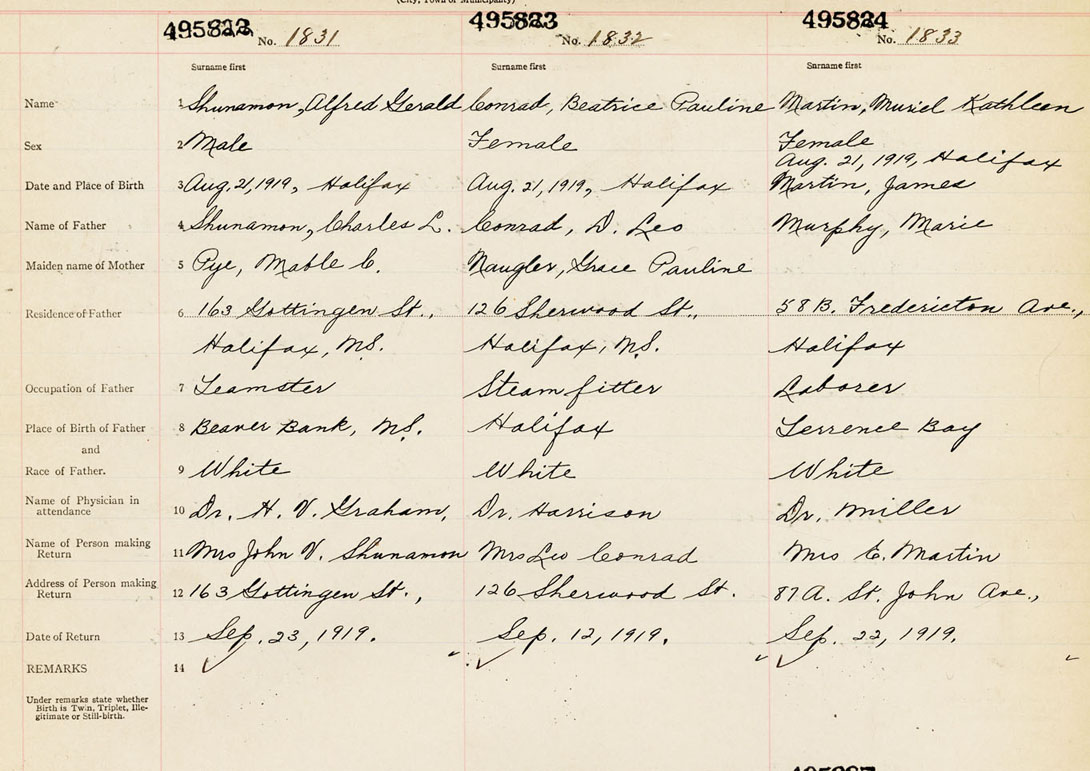 (City, Town or Municipality)
495823 495824
No. 1831 No. 1832 No. 1833
Surname first Surname first Surname first
Name 1 Shunamon, Alfred Gerald Conrad, Beatrice Pauline Martin, Muriel Kathleen
Sex 2 Male Female Female
Aug. 21, 1919, Halifax
Date and Place of Birth 3 Aug. 21, 1919, Halifax Aug. 21, 1919, Halifax Martin, James
Name of Father 4 Shunamon, Charles L. Conrad, D. Leo Murphy, Marie
Maiden name of Mother 5 Pye, Mable C. Naugler, Grace Pauline
Residence of Father 6 163 Gottingen St., 126 Sherwood St., 58 B. Fredericton Ave.,
Halifax, N.S. Halifax, N.S. Halifax
Occupation of Father 7 Teamster Steam fitter Laborer
Place of Birth of Father 8 Beaver Bank, N.S. Halifax Terrence Bay
and
Race of Father. 9 White White White
Name of Physician in
attendance 10 Dr. H. V. Graham, Dr. Harrison Dr. Miller
Name of Person making
Return 11 Mrs John V. Shunamon Mrs Leo Conrad Mrs C. Martin
Address of Person making
Return 12 163 Gottingen St., 126 Sherwood St. 87 A. St. John Ave.,
Date of Return 13 Sep. 23, 1919. Sep. 12, 1919. Sep. 22, 1919.
REMARKS 14
Under remarks state whether
Birth is Twin, Triplet, Ille-
gitimate or Still-birth.